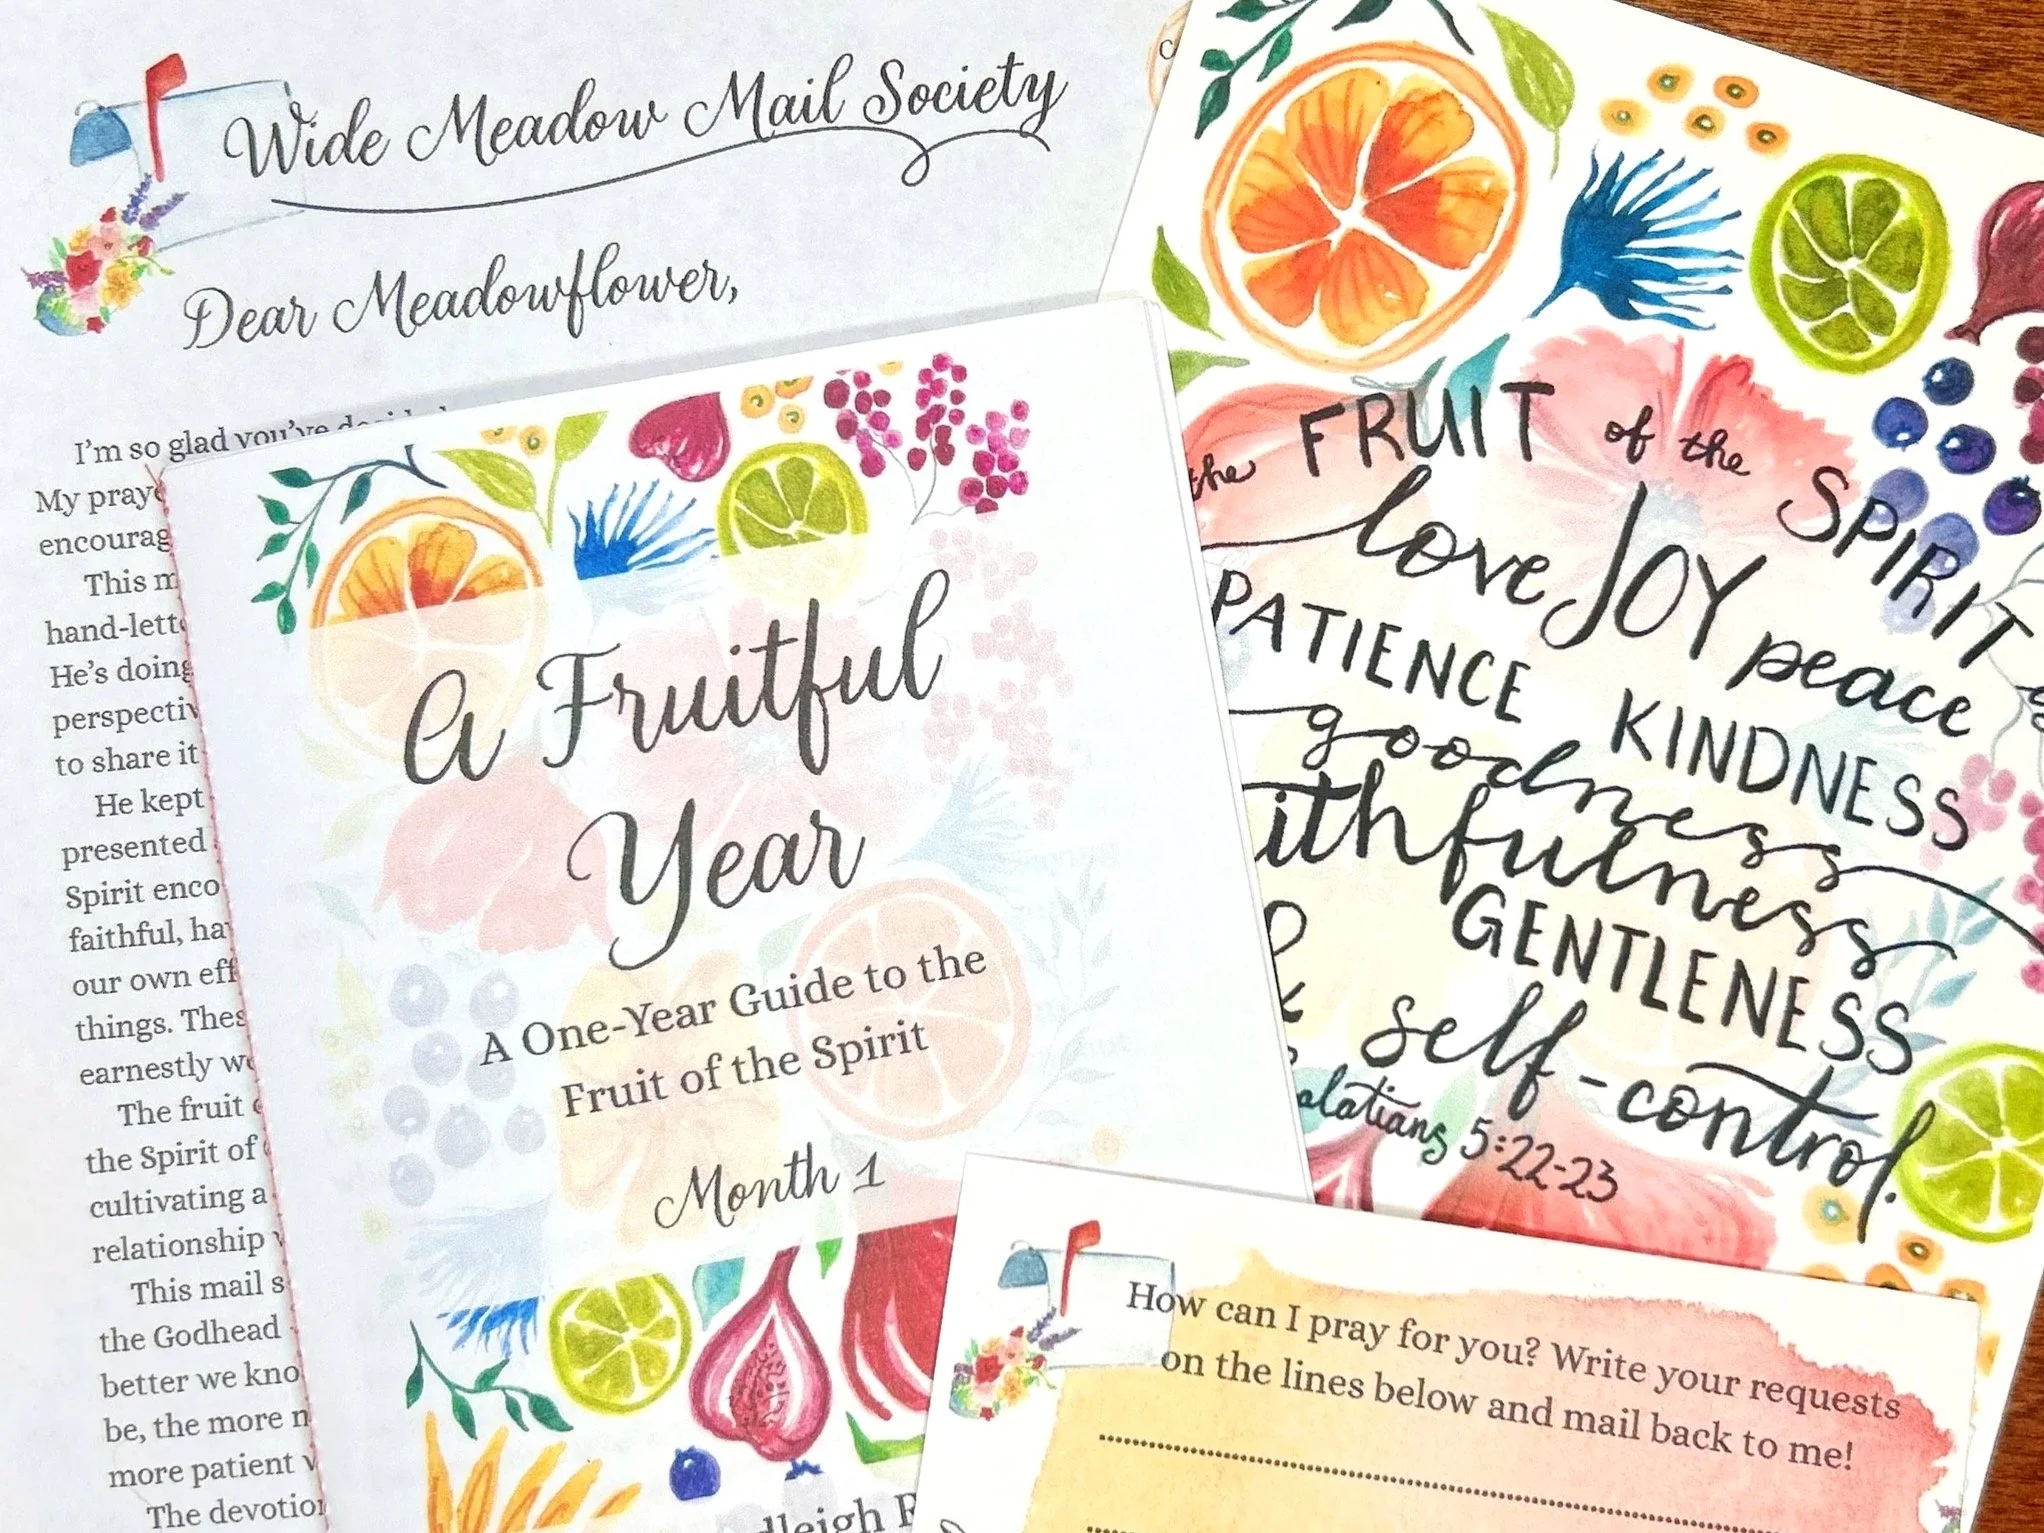 Wide Meadow Mail Society
Dear Meadowflower,
I'm so glad you've decided
My pray
encourag
This m
hand-lette
He's doing
perspectiv
to share it
He kept
presented
Spirit enco
faithful, ha
our own eff
things. Thes
earnestly we
The fruit
the Spirit of
cultivating a
relationship
This mail s
the Godhead
better we kno
be, the more n
more patient
The devotion
A Fruitful
Year
A One-Year Guide to the
Fruit of the Spirit
Month 1
dleigh R
the FRUIT of the SPIRIT
love JOY peace
PATIENCE KINDNESS
goodness
ithfulness
GENTLENESS
& self-control.
alatians 5:22-23
How can I pray for you? Write your requests
on the lines below and mail back to me!